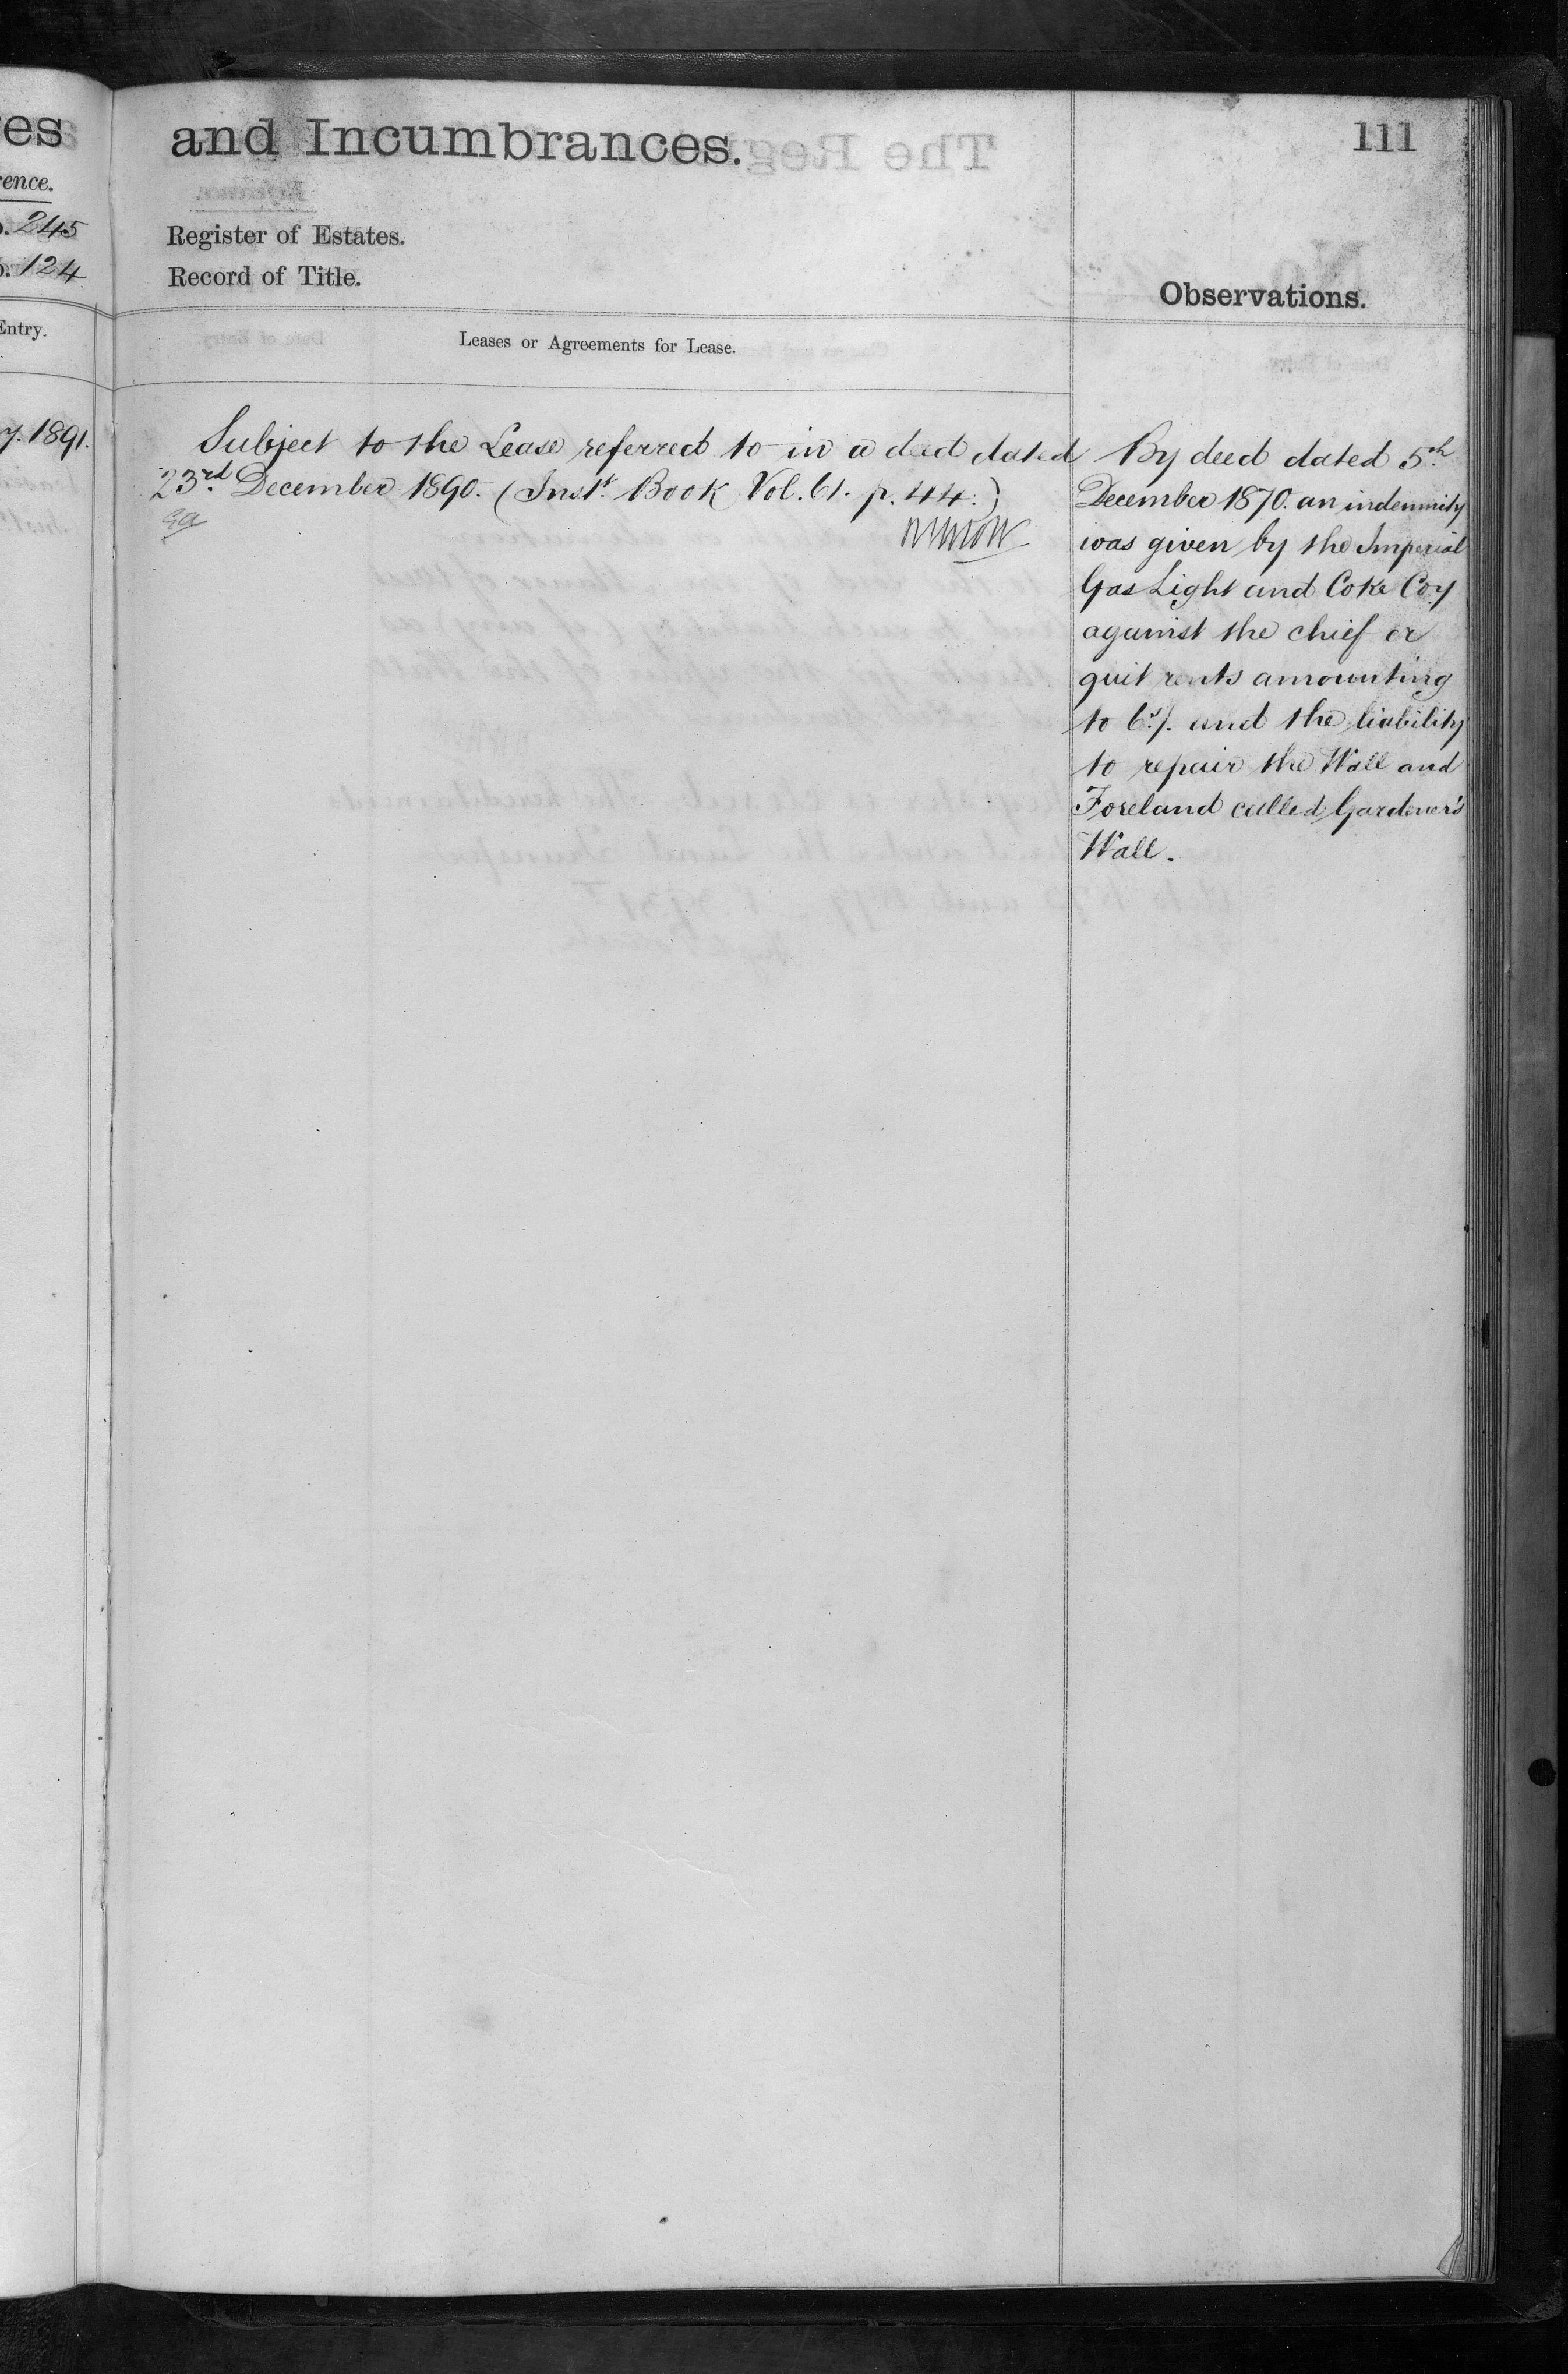 es
ence.
245
124
Entry.
1891.
and Incumbrances.
111
Register of Estates.
Record of Title.
Observations.
Leases or Agreements for Lease.
Subject to the Lease referred to in a deed dated
23rd December 1890. (Inst. Book Vol. 61. p. 44.)
By deed dated 5th
December 1870. an indemnity
was given by the Imperial
Gas Light and Coke Coy
against the chief or
quit rents amounting
to 6s/. and the liability
to repair the Wall and
Foreland called Gardener's
Wall.